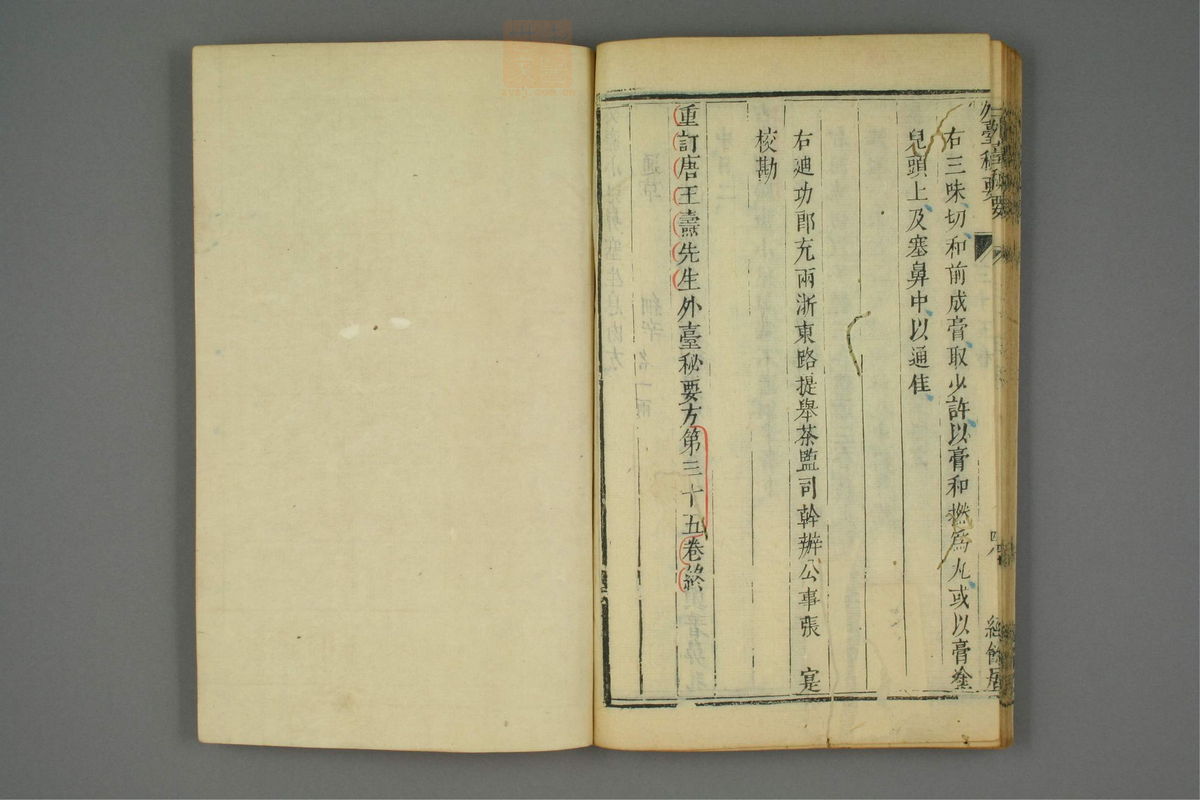 外臺秘要
右三味切和前成膏取少許以膏和撚爲丸或以膏塗
兒頭上及塞鼻中以通佳
右迪功郎充兩浙東路提舉茶監司幹辦公事張 寔
校勘
重訂唐王燾先生外臺秘要方第三十五卷終
經餘居